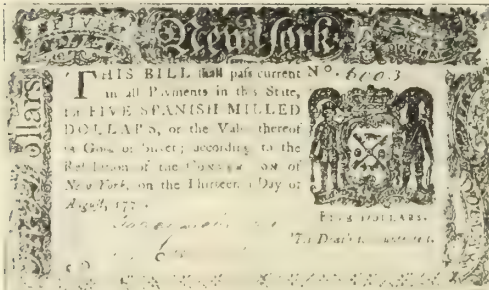 FIVE
New York
DOLLARS
THIS BILL shall pass current
in all Payments in this State,
for FIVE SPANISH MILLED
DOLLARS, or the Value thereof
in Gold or Silver; according to the
Resolution of the CONVENTION of
New York, on the Thirteenth Day of
August, 177
No. 6003
FIVE DOLLARS.
'Tis Death to counterfeit.
ollars